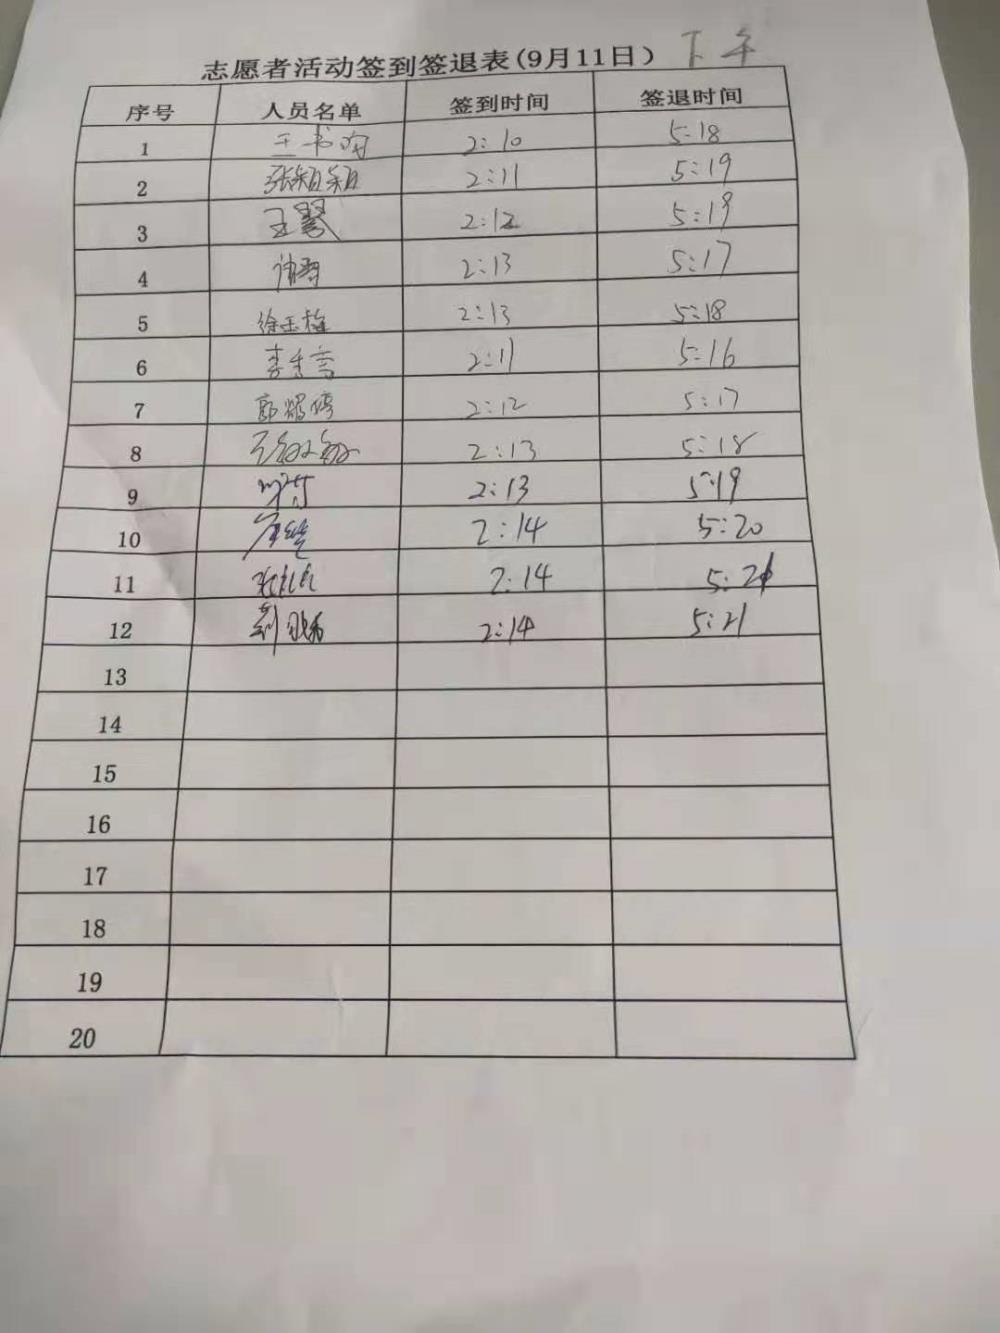 志愿者活动签到签退表(9月11日) 下午
序号 人员名单 签到时间 签退时间
1 王书 2:10 5:18
2 张颖颖 2:11 5:19
3 王琴 2:12 5:19
4 2:13 5:17
5 徐玉梅 2:13 5:18
6 李秀 2:11 5:16
7 郭 2:12 5:17
8 王敏敏 2:13 5:18
9 2:13 5:19
10 2:14 5:20
11 2:14 5:21
12 刘 2:14 5:21
13
14
15
16
17
18
19
20